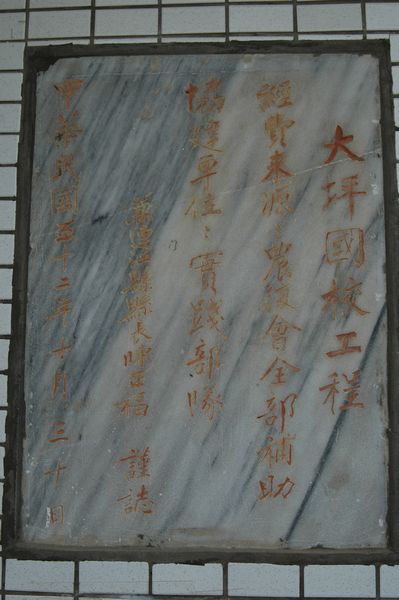 大坪國校工程
經費來源：農復會全部補助
協建單位：實踐部隊
兼連江縣縣長 正福 謹誌
中華民國五十二年十月三十日